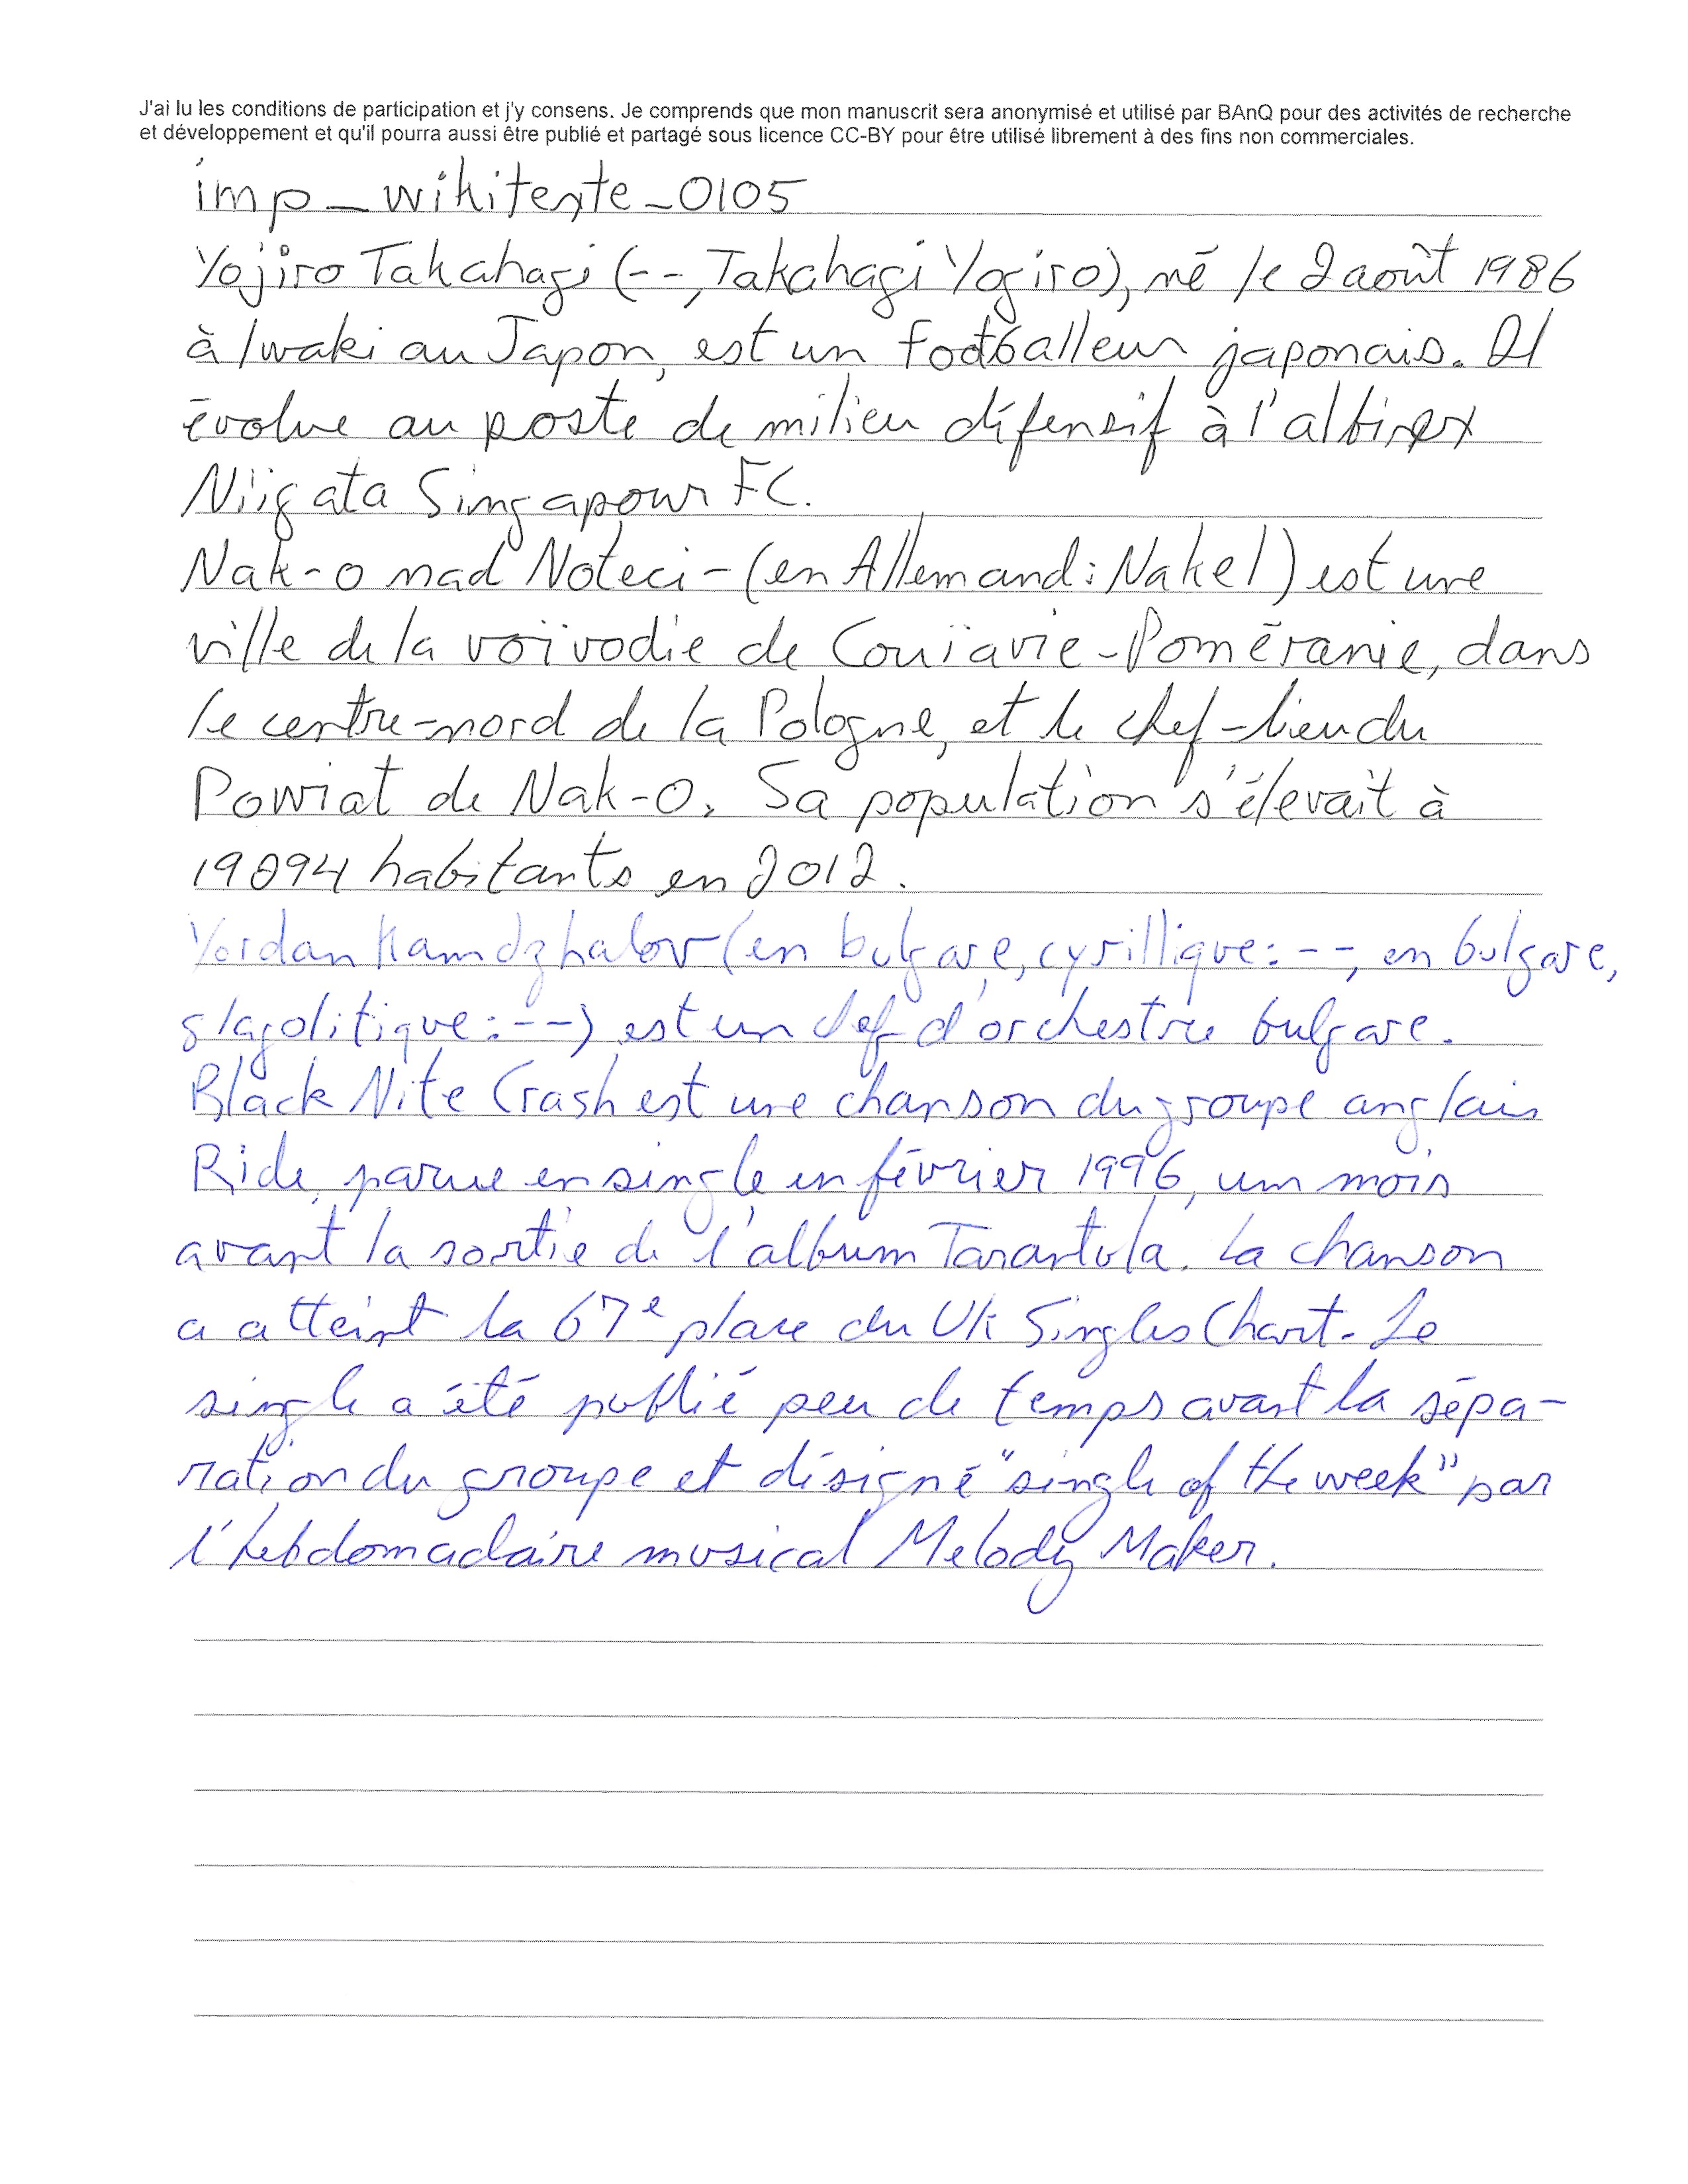 J'ai lu les conditions de participation et j'y consens. Je comprends que mon manuscrit sera anonymisé et utilisé par BAnQ pour des activités de recherche
et développement et qu'il pourra aussi être publié et partagé sous licence CC-BY pour être utilisé librement à des fins non commerciales.
imp_wikitexte_0105
Yojiro Takahagi (--, Takahagi Yogiro), né le 2 août 1986
à Iwaki au Japon, est un footballeur japonais. Il
évolue au poste de milieu défensif à l'albirex
Niigata Singapour FC.
Nak-o nad Noteci- (en Allemand : Nakel) est une
ville de la voïvodie de Couïavie-Poméranie, dans
le centre-nord de la Pologne, et le chef-lieu du
Powiat de Nak-o. Sa population s'élevait à
19094 habitants en 2012.
Yordan Kamdzhalov (en bulgare, cyrillique : --, en bulgare,
glagolitique : --) est un chef d'orchestre bulgare.
Black Nite Crash est une chanson du groupe anglais
Ride, parue en single en février 1996, un mois
avant la sortie de l'album Tarantula. La chanson
a atteint la 67e place du UK Singles Chart. Le
single a été publié peu de temps avant la sépa-
ration du groupe et désigné "single of the week" par
l'hebdomadaire musical Melody Maker.